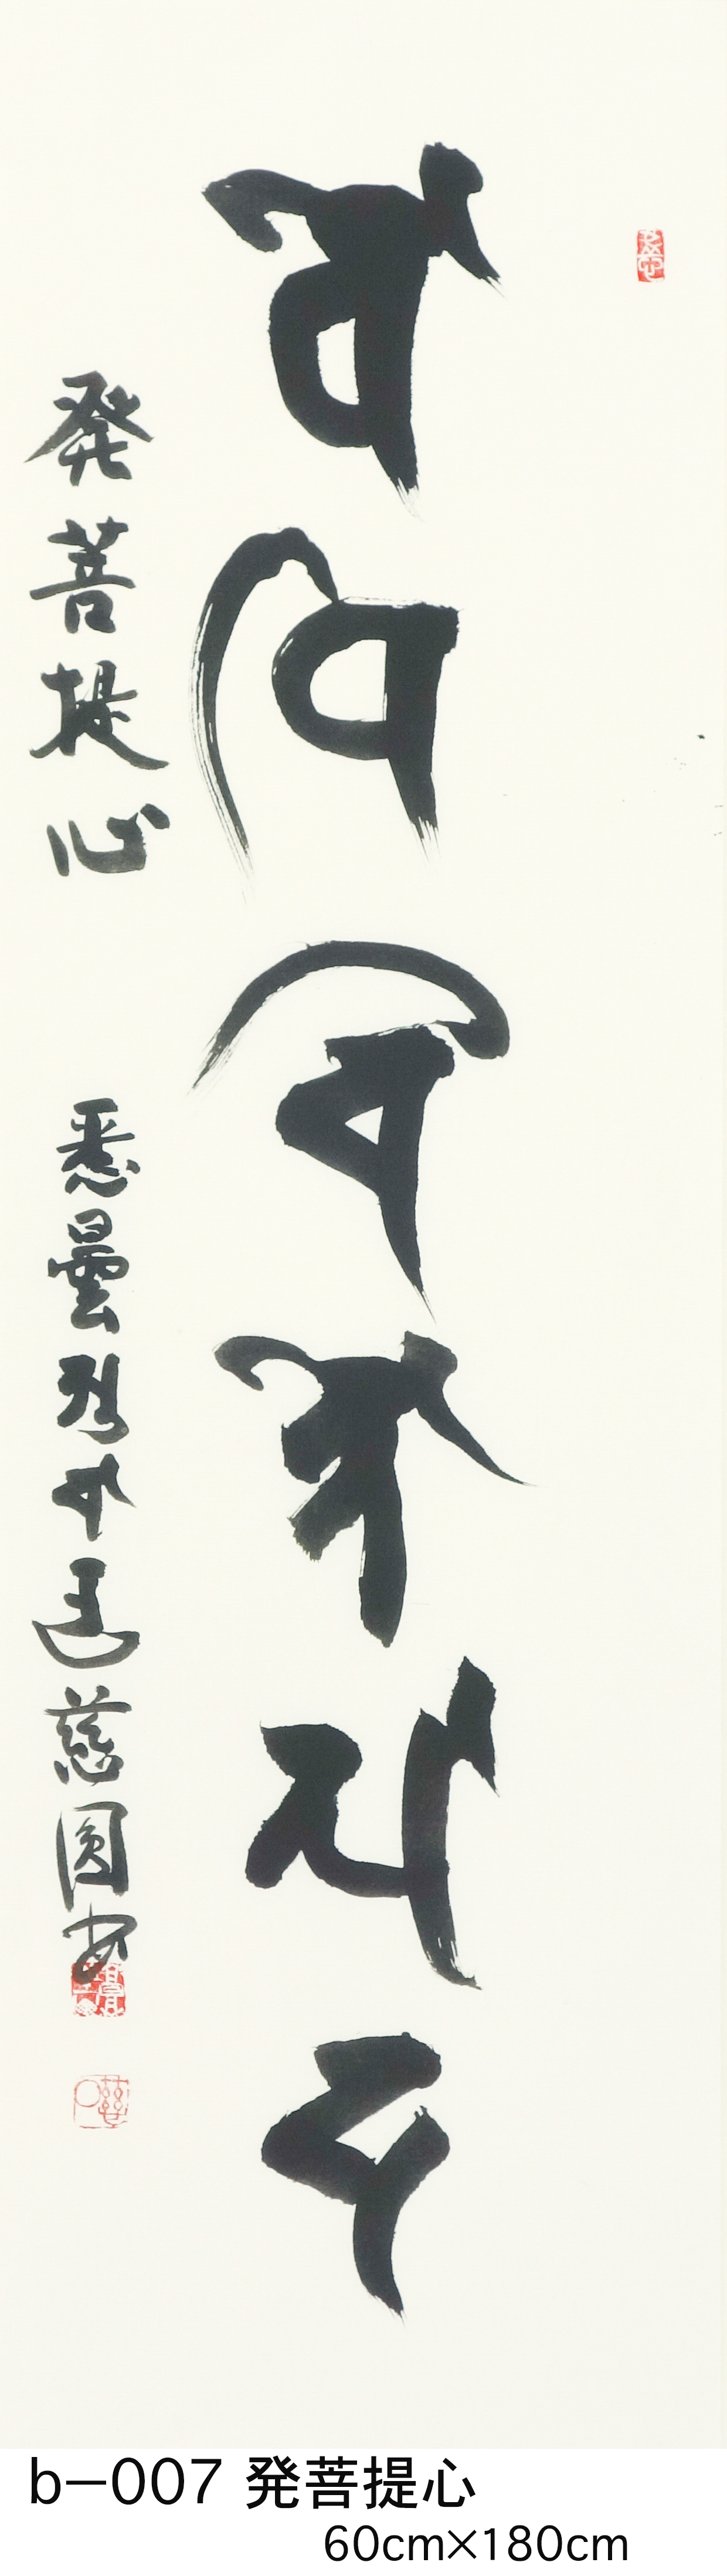 𑖤𑖺𑖠𑖰𑖓𑖰𑖝𑖿𑖝𑖺𑖝𑖿𑖢𑖯𑖟
発菩提心
悉曇 慈圓書
b−007 発菩提心
60cm×180cm